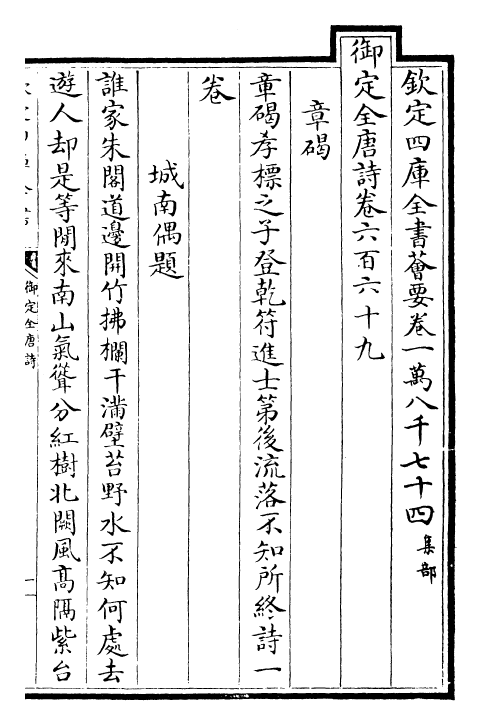 欽定四庫全書薈要卷一萬八千七十四 集部
御定全唐詩卷六百六十九
章碣
章碣孝標之子登乾符進士第後流落不知所終詩一
卷
城南偶題
誰家朱閣道邊開竹拂欄干滿壁苔野水不知何處去
遊人却是等閒來南山氣聳分紅樹北闕風髙隔紫台
御定全唐詩
一